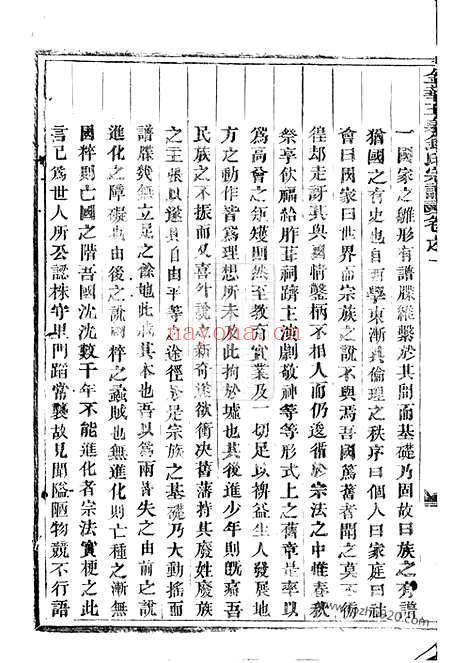 一國家之雛形有譜牒維繫於其間而基礎乃固故曰族之有譜
猶國之有史也自西學東漸其倫理之秩序曰個人曰家庭曰社
會曰國家曰世界而宗族之說不與焉吾國篤舊者聞之莫不傍
徨却走訝其與國情鑿枘不相容也仍逡循於宗法之中惟春秋
祭享伙福給胙葺祠躋主演劇敬神等等形式上之舊章是率以
爲高曾之矩矱則然至教育實業及一切足以裨益生人發展地
方之動作皆爲理想所未到此拘於墟也其進少年則旣嘉吾
民族之不振而又喜外說之新奇遂欲衝决舊藩持其廢姓廢族
之主張以趨於自由平等之途徑於是宗族之基礎乃大動搖而
譜牒幾無立足之餘地此戕其本也吾以爲兩者皆失之由前之說
進化之障礙也由後之說國粹之蟊賊也無進化則亡種之漸無
國粹則亡國之階吾國沈沈數千年不能進化者宗法實梗之此
言已爲世人所公認株守里門蹈常襲故見聞隘陋物競不行語
宗譜卷之一
nayona.cn